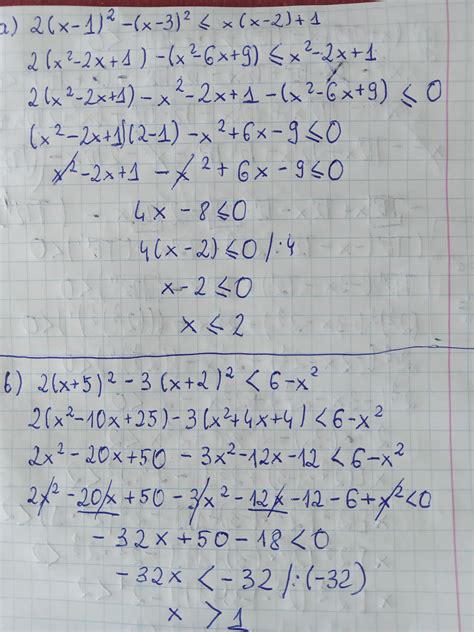 а) 2(x-1)² -(x-3)² ≤ x(x-2)+1
2(x²-2x+1) -(x²-6x+9) ≤ x²-2x+1
2(x²-2x+1) - x²-2x+1 -(x²-6x+9) ≤ 0
(x²-2x+1)(2-1) -x²+6x-9≤0
x²-2x+1 -x²+6x-9≤0
4x-8≤0
4(x-2)≤0 /:4
x-2≤0
x≤2
в) 2(x+5)² -3(x+2)² < 6-x²
2(x²-10x+25)-3(x²+4x+4)<6-x²
2x²-20x+50 -3x²-12x-12<6-x²
2x²-20x+50-3x²-12x-12-6+x²<0
-32x+50-18<0
-32x<-32 /:(-32)
x >1